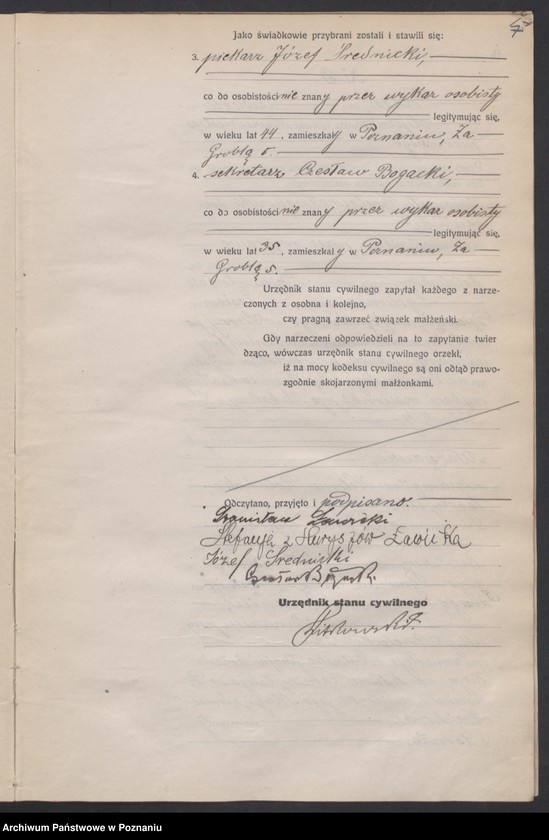 7
Jako świadkowie przybrani zostali i stawili się:
3. piekarz Józef Średnicki,
co do osobistości nie znany przez wykaz osobisty
legitymując się,
w wieku lat 44, zamieszkały w Poznaniu, Za
Groblą 5.
4. sekretarz Czesław Bogacki,
co do osobistości nie znany przez wykaz osobisty
legitymując się,
w wieku lat 35, zamieszkały w Poznaniu, Za
Groblą 5.
Urzędnik stanu cywilnego zapytał każdego z narze-
czonych z osobna i kolejno,
czy pragną zawrzeć związek małżeński.
Gdy narzeczeni odpowiedzieli na to zapytanie twier
dząco, wówczas urzędnik stanu cywilnego orzekł,
iż na mocy kodeksu cywilnego są oni odtąd prawo-
zgodnie skojarzonymi małżonkami.
Odczytano, przyjęto i podpisano.
Stanisław
Stefanja z Hurysjów Ławicka
Józef Srednicki
Urzędnik stanu cywilnego
Archiwum Państwowe w Poznaniu